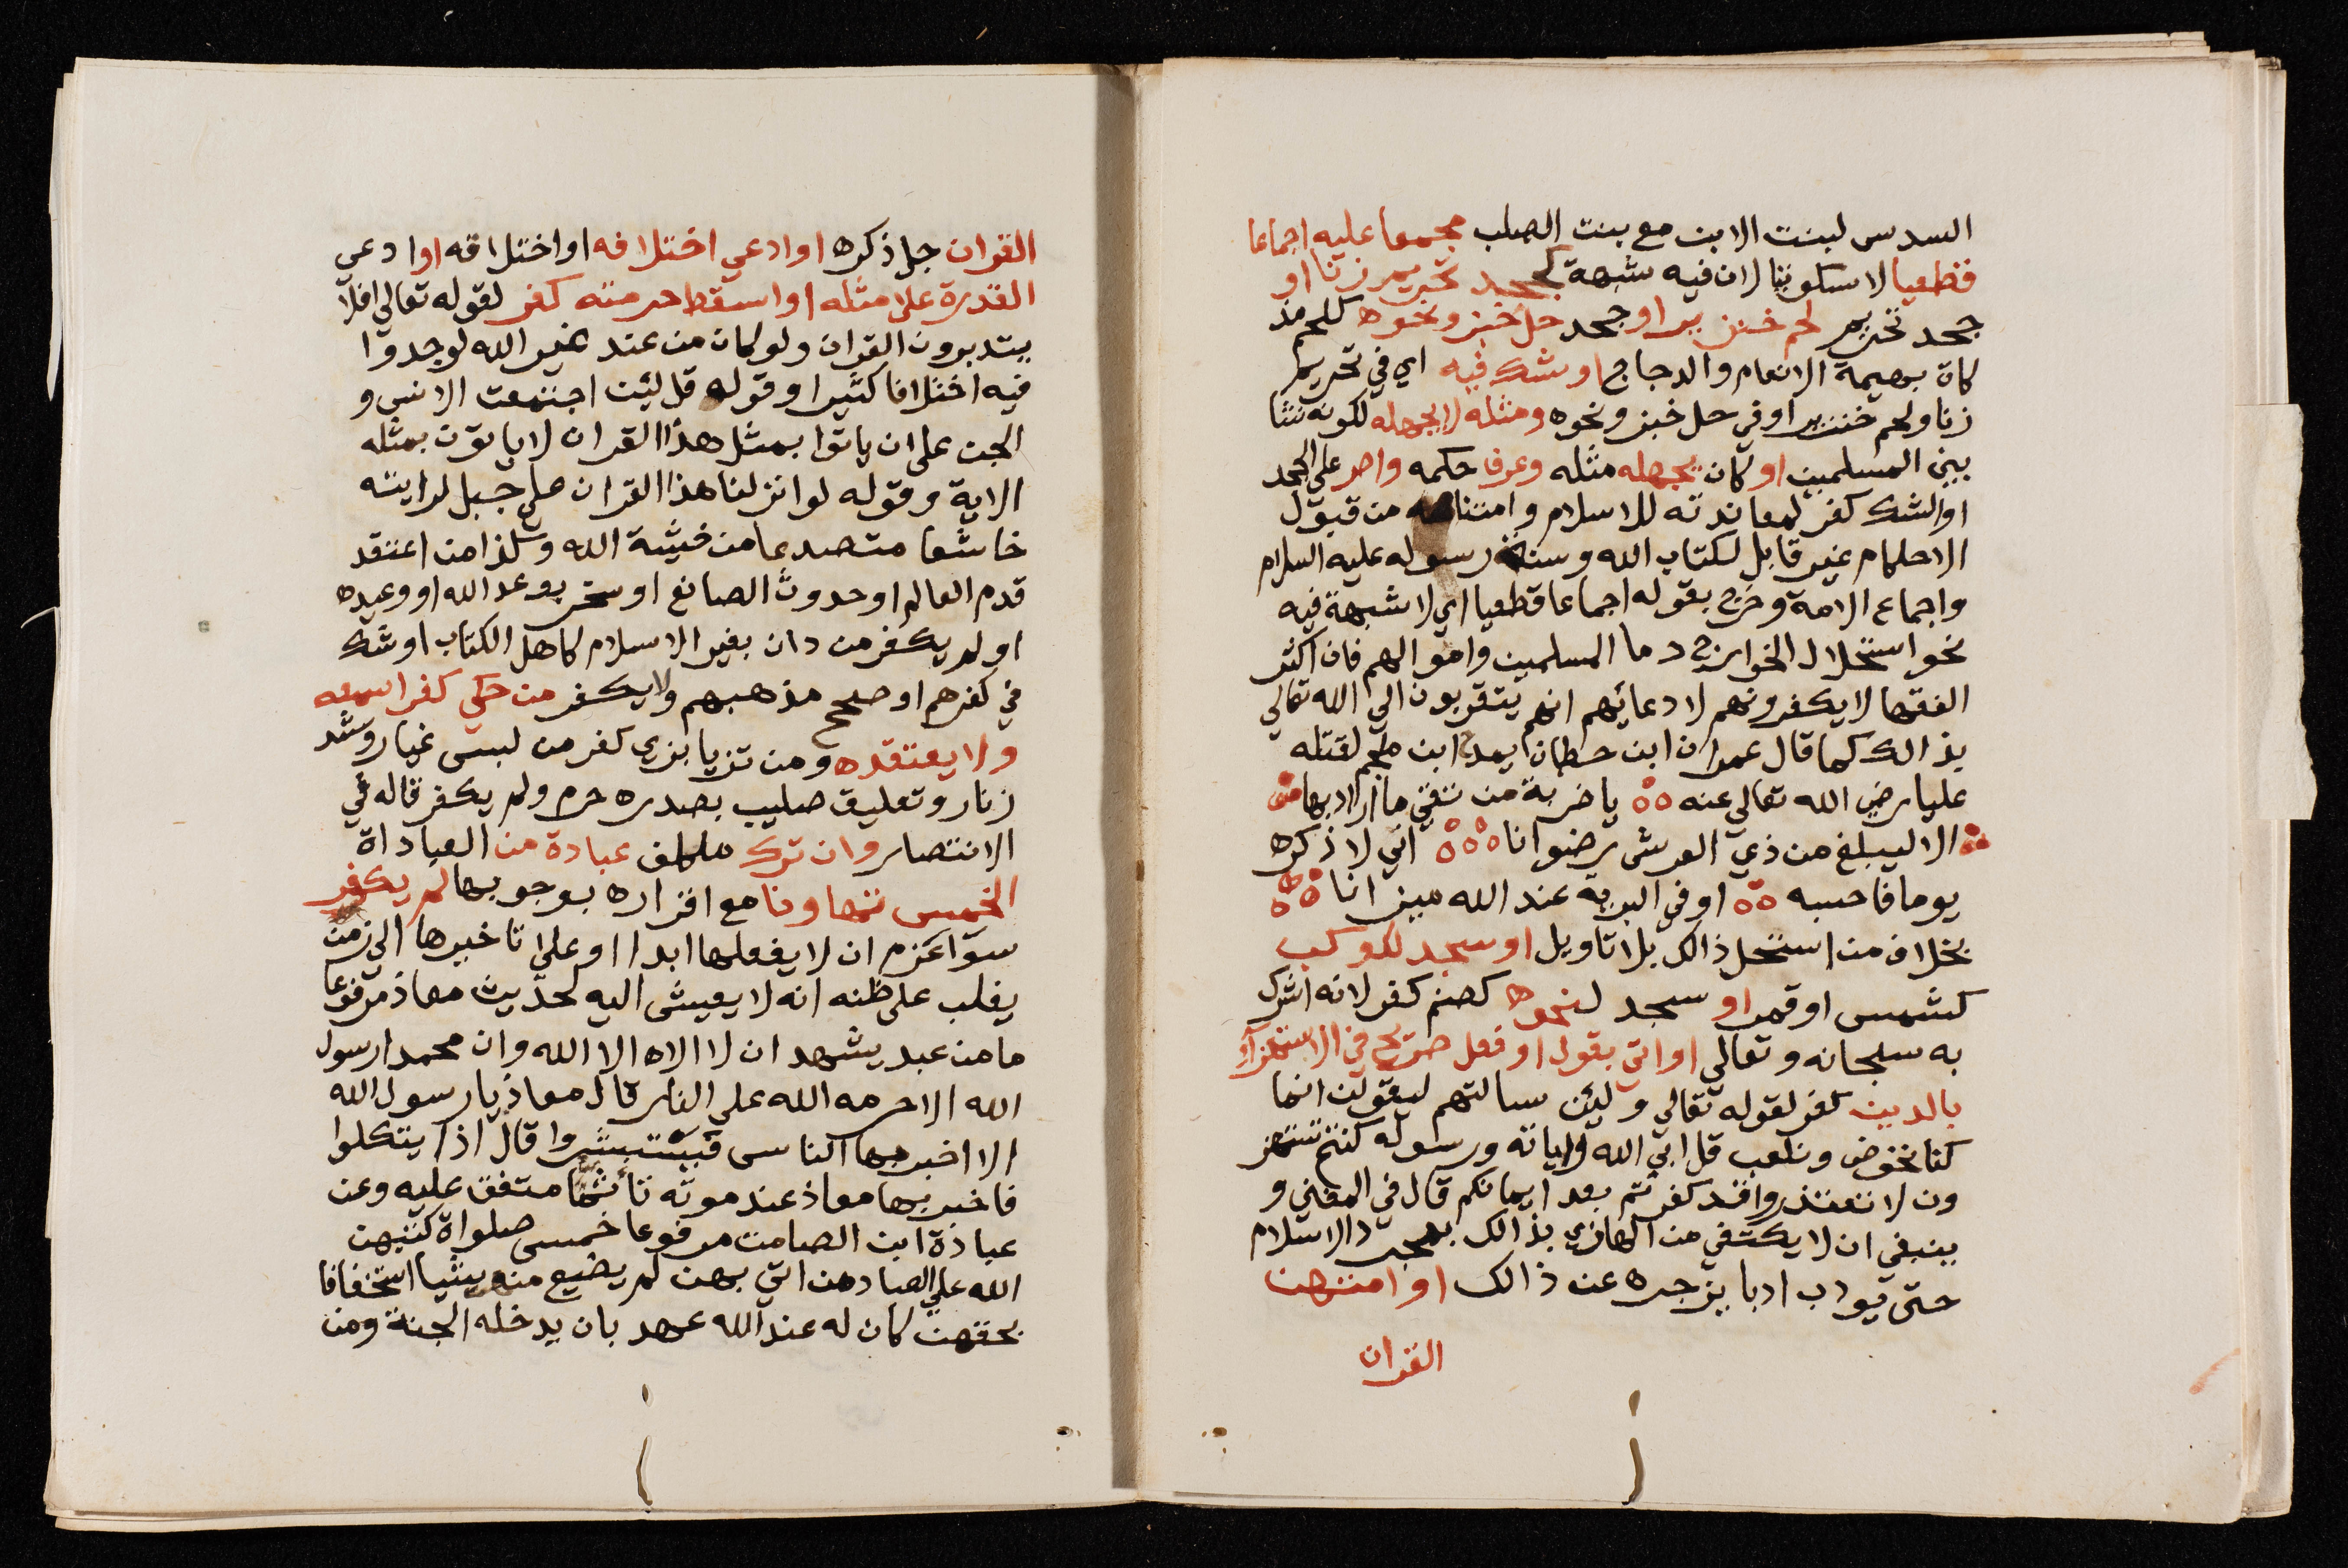 السدس لبنت الابن مع بنت الصلب مجمعا عليه اجماعا
قطعيا لا سكوتيا لان فيه شبهة كجحد تحريم زنا او
جحد تحريم لحم خنزير او جحد حل خبز ونحوه كلحم مذ
كاة بهيمة الانعام والدجاج او شك فيه اي في تحريم
زنا ولحم خنزير او في حل خبز ونحوه ومثله لا يجهله لكونه نشا
بين المسلمين او كان يجهله مثله وعرف حكمه واصر على الجحد
او الشك كفر لمعاندته للاسلام وامتناعه من قبول
الاحكام غير قابل لكتاب الله وسنة رسوله عليه السلام
واجماع الامة وخرج بقوله اجماعا قطعيا اي لا شبهة فيه
نحو استحلال الخوارج دما المسلمين واموالهم فان اكثر
الفقها لا يكفرونهم لادعائهم انهم يتقربون الي الله تعالي
بذالك كما قال عمران ابن حطان يمدح ابن ملجم لقتله
عليا رضي الله تعالي عنه ٥٥ يا ضربة من تقي ما اراد بها
الا ليبلغ من ذي العرش رضوانا ٥٥٥ اني لاذكره
يوما فاحسبه ٥٥ اوفي البرية عند الله ميزانا ٥٥
بخلاف من استحل ذالك بلا تاويل او سجد لكوكب
كشمس او قمر او سجد لنحوه كصنم كفر لانه اشرك
به سبحانه وتعالي او اتي بقول او فعل صريح في الاستهزآء
بالدين كفر لقوله تعالي ولئن سالتهم ليقولن انما
كنا نخوض ونلعب قل ابي الله واياته ورسوله كنتم تستهز
ون لا تعتذروا قد كفرتم بعد ايمانكم قال في المغني و
ينبغي ان لا يكتفي من الهازي بذالك بمجرد الاسلام
حتى يودب ادبا يزجره عن ذالك او امتهن
القران
القران جل ذكره او ادعي اختلافه او اختلاقه او ادعى
القدرة علا مثله او اسقط حرمته كفر لقوله تعالي افلا
يتدبرون القران ولو كان من عند غير الله لوجدوا
فيه اختلافا كثيرا وقوله قل لئن اجتمعت الانس و
الجن على ان ياتوا بمثل هذا القران لا ياتون بمثله
الاية وقوله لو انزلنا هذا القران على جبل لرايته
خاشعا متصدعا من خشية الله وكذا من اعتقد
قدم العالم او حدوث الصانع او سخر بوعد الله او وعيده
او لم يكفر من دان بغير الاسلام كاهل الكتاب او شك
في كفرهم او صحح مذهبهم ولا يكفر من حكي كفرا سمعه
ولا يعتقده ومن تزيا بزي كفر من لبس غيار وشد
زنار وتعليق صليب بصدره حرم ولم يكفر قاله في
الانتصار وان ترك مكلف عبادة من العباداة
الخمس تهاونا مع اقراره بوجوبها لم يكفر
سوآ عزم ان لا يفعلها ابدا او على تاخيرها الى زمن
يغلب على ظنه انه لا يعيش اليه لحديث معاذ مرفوعا
ما من عبد يشهد ان لا الاه الا الله وان محمدا رسول
الله الا حرمه الله على النار قال معاذ يا رسول الله
الا اخبر بها الناس فيستبشروا قال اذا يتكلوا
فاخبر بها معاذ عند موته تأثما متفق عليه وعن
عبادة ابن الصامت مرفوعا خمس صلواة كتبهن
الله على العباد من اتي بهن لم يضيع منهن شيا استخفافا
بحقهن كان له عند الله عهد بان يدخله الجنة ومن